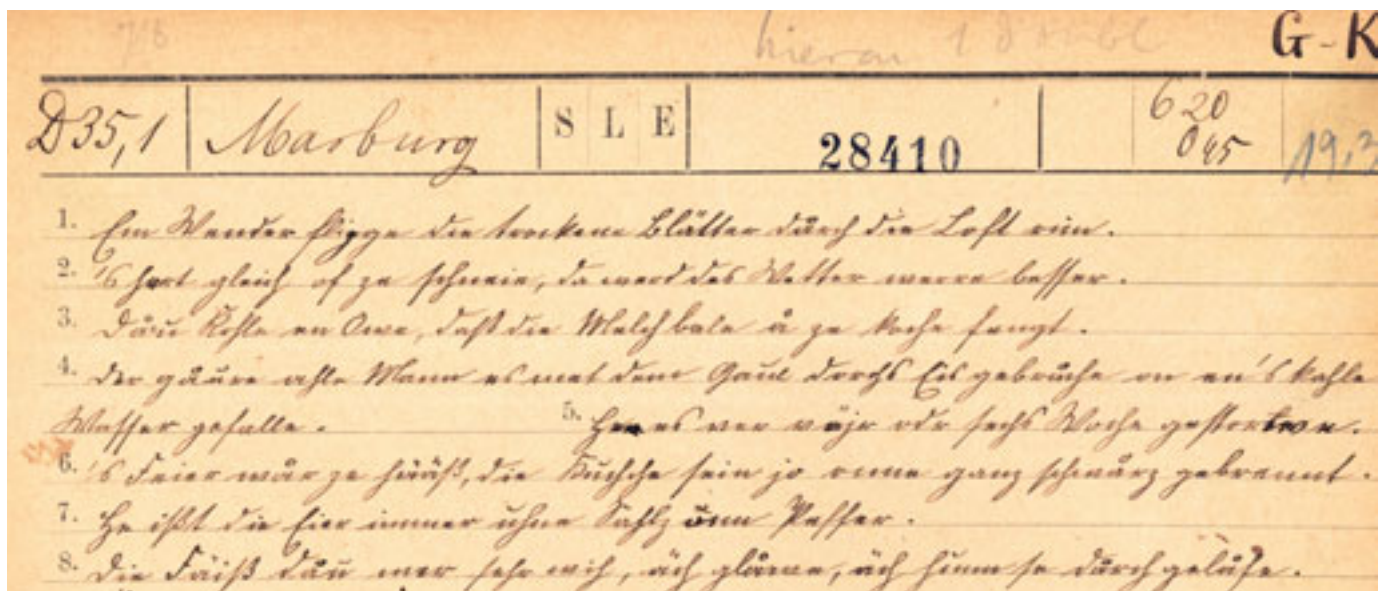 G-K
D 35,1 Marburg S L E 28410 620 045 19,3
1. Em Wender fligge die trockene Blätter dürch die Loft rim.
2. 's hort gleich of ze schneie, da werd des Wetter werre besser.
3. Dåu Kohle en Owe, daß die Melch bale å ze koche fengt.
4. Der gåure ahle Mann es met dem Gaul dorchs Eis gebroche on en's kahle
Wasser gefalle. 5. He es ver vejr odr sechs Woche gestorwe.
6. 's Feier wår ze hääß, die Kuchche sein jo onne ganz schwårz gebrennt.
7. He ißt die Eier immer uhne Sahlz önn Peffer.
8. Die Fäiß dåu mer sehr wih, äch glåwe, äch hunn se dürchgelåfe.